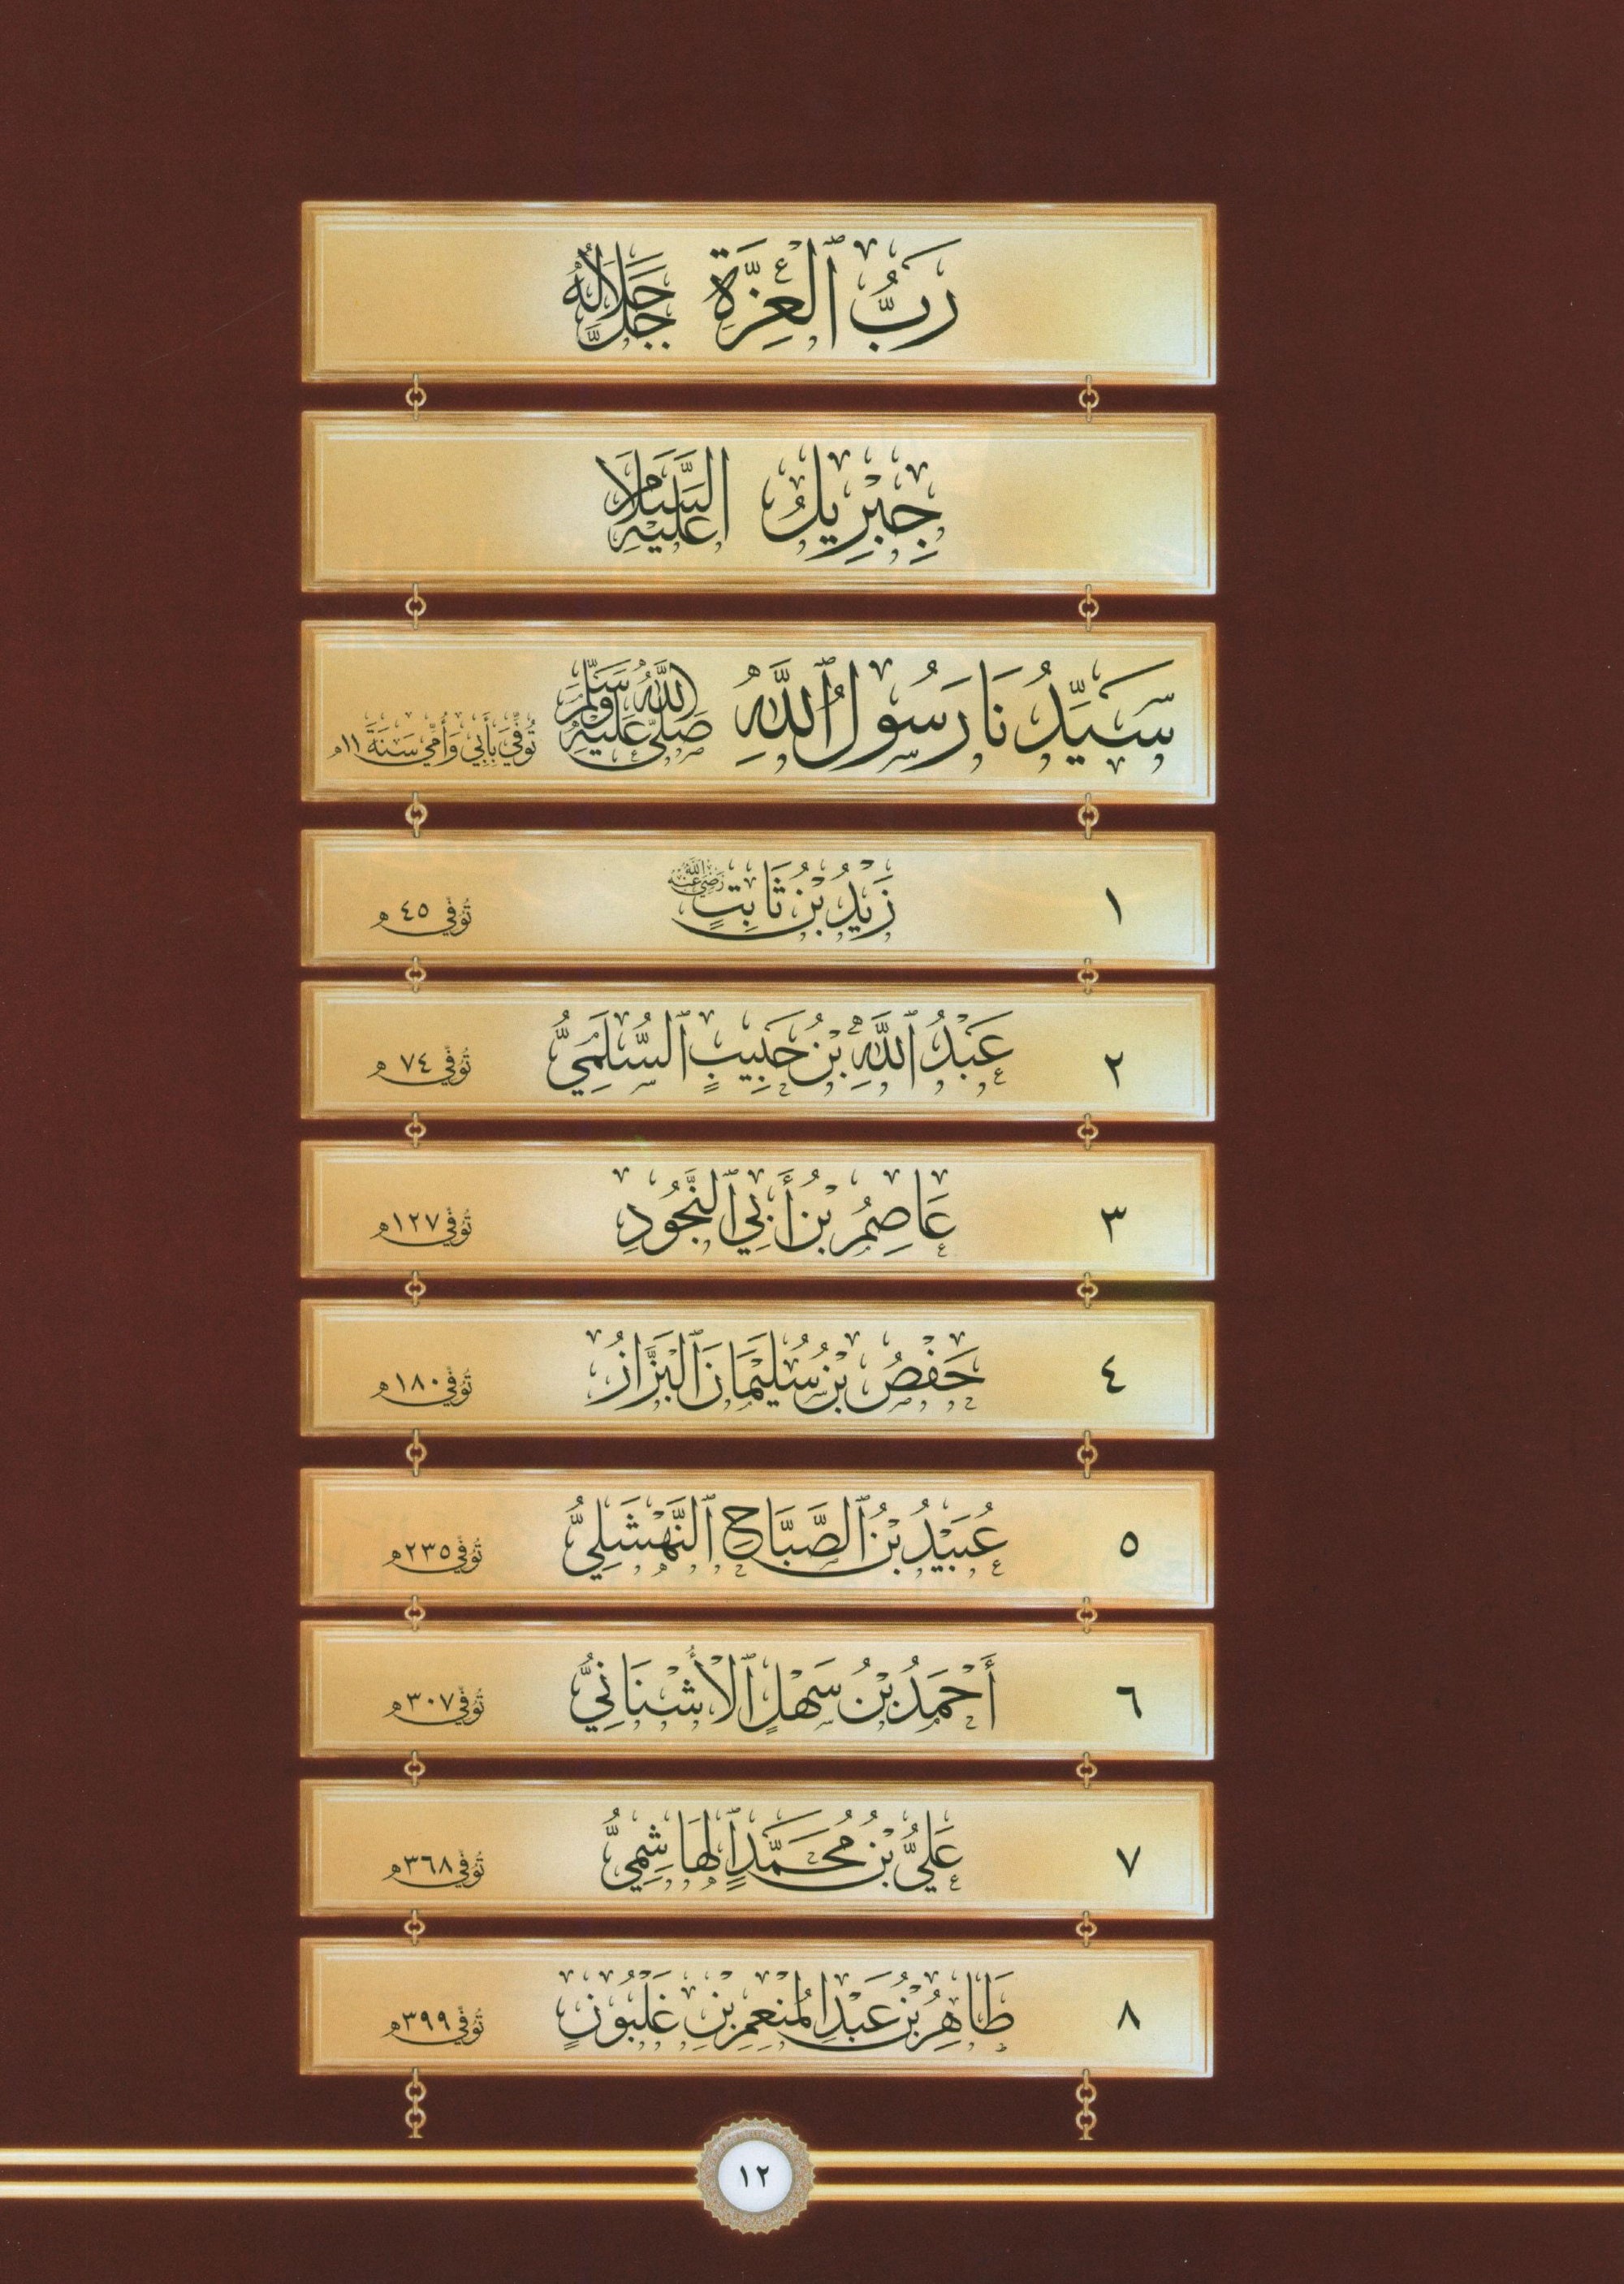 رَبُّ ٱلْعِزَّةِ جَلَّ جَلَالُهُ
جِبْرِيلُ عَلَيْهِ السَّلَامُ
سَيِّدُنَا رَسُولُ ٱللَّهِ صَلَّى اللَّهُ عَلَيْهِ وَسَلَّمَ تُوُفِّيَ بِأَبِي وَأُمِّي سَنَةَ ١١هـ
١ زَيْدُ بْنُ ثَابِتٍ رَضِيَ اللَّهُ عَنْهُ تُوُفِّيَ ٤٥ هـ
٢ عَبْدُ ٱللَّهِ بْنُ حَبِيبٍ ٱلسُّلَمِيُّ تُوُفِّيَ ٧٤ هـ
٣ عَاصِمُ بْنُ أَبِي ٱلنَّجُودِ تُوُفِّيَ ١٢٧هـ
٤ حَفْصُ بْنُ سُلَيْمَانَ ٱلْبَزَّازُ تُوُفِّيَ ١٨٠هـ
٥ عُبَيْدُ بْنُ ٱلصَّبَّاحِ ٱلنَّهْشَلِيُّ تُوُفِّيَ ٢٣٥هـ
٦ أَحْمَدُ بْنُ سَهْلٍ ٱلْأُشْنَانِيُّ تُوُفِّيَ ٣٠٧هـ
٧ عَلِيُّ بْنُ مُحَمَّدٍ ٱلْهَاشِمِيُّ تُوُفِّيَ ٣٦٨هـ
٨ طَاهِرُ بْنُ عَبْدِ الْمُنْعِمِ بْنِ غَلْبُونٍ تُوُفِّيَ ٣٩٩هـ
١٢